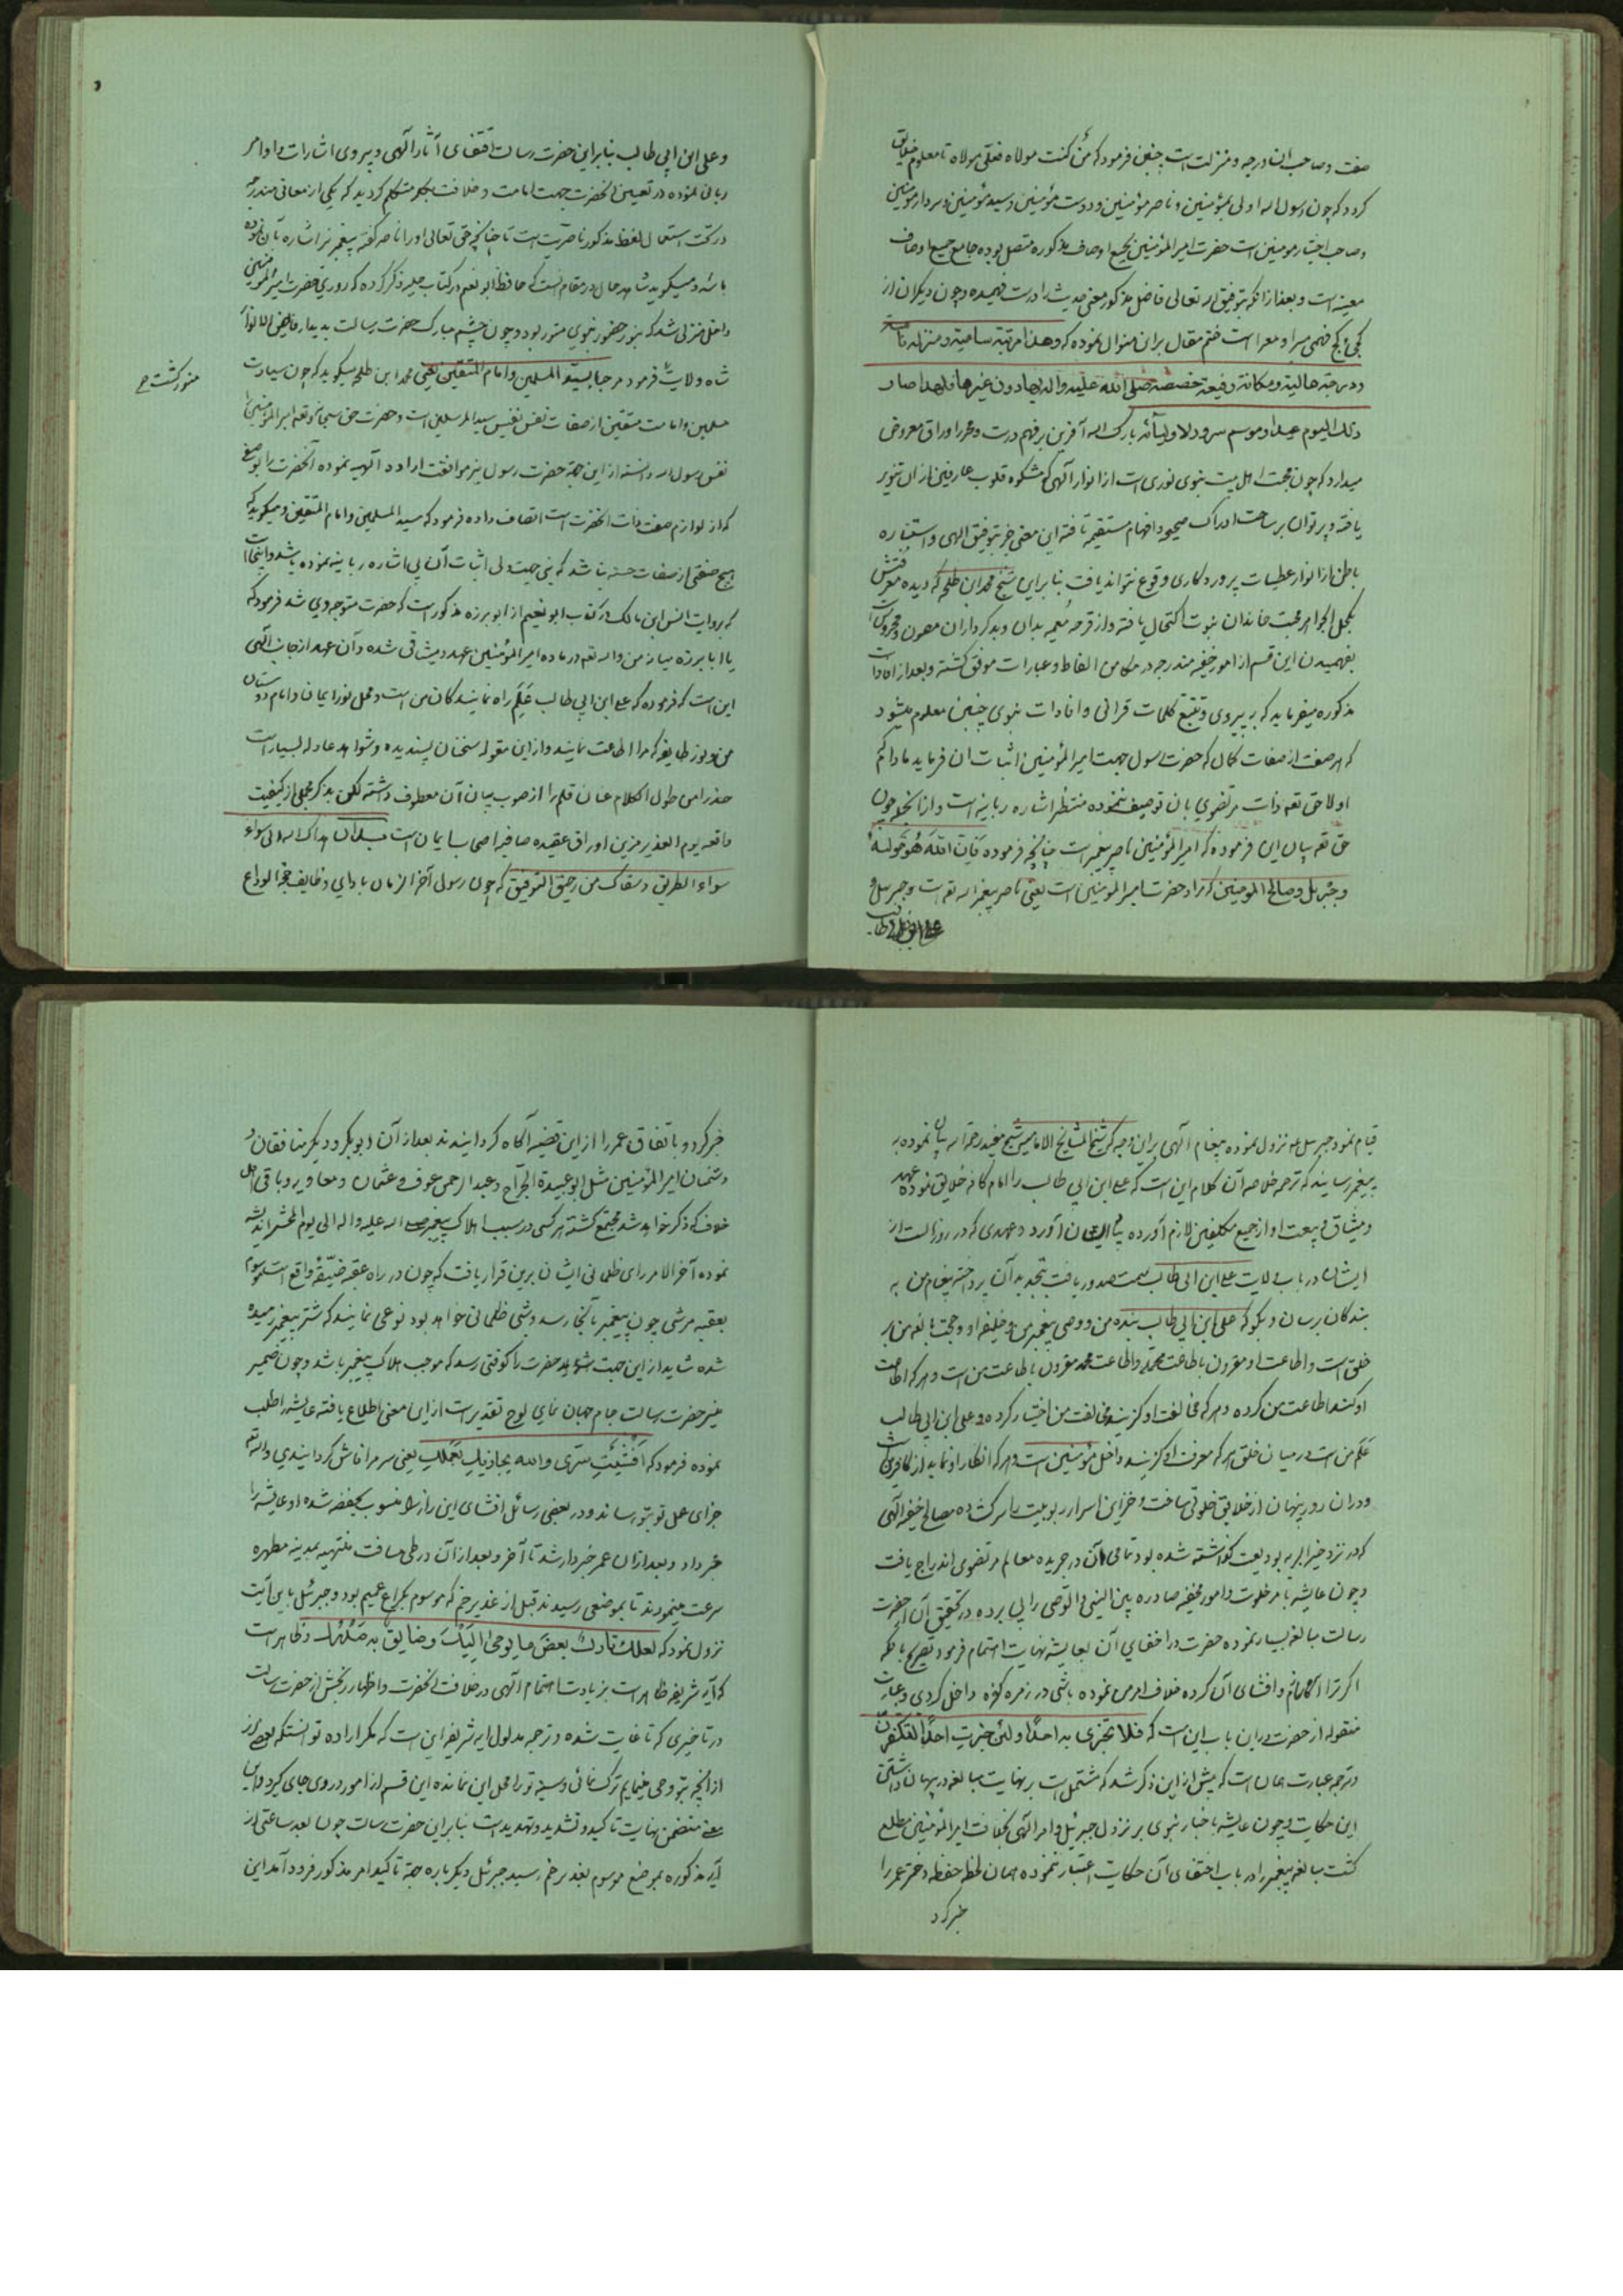 صفت و صاحب این درجه و منزلت است چنین فرمود که من کنت مولاه فعلی مولاه تا معلوم خلایق
کردد که چون رسول الله اولی بمؤمنین و ناصر مؤمنین و دوست مؤمنین و سید مؤمنین و سردار مؤمنین
و صاحب اختیار مومنین است حضرت امیر المؤمنین بجمیع اوصاف مذکوره متصل بوده جامع جمیع اوصاف
معینه است و بعد از انکه بتوفیق الله تعالی فاضل مذکور معنی حدیث را درست فهمیده و چون دیکران از
کجی و کج فهمی مبرا و معرا است ختم مقال بر این منوال نموده که وهذا مرتبة سامیة و منزلة
ودرجة عالیة ومکانة رفیعة خصصه صلی الله علیه واله بها دون غیره فلهذا صار
ذلک الیوم عید او موسم سرور لاولیائه بارک الله آفرین بر فهم درست و محرر اوراق معروض
میدارد که چون محبت اهل بیت نبوی نوری است از انوار آلهی که مشکوه قلوب عارفین از ان تنویر
یافته و پرتو ان بر ساحت ادراک صحیح و افهام مستقیمه تافته این معنی جز بتوفیق الهی و استناره
باطن از انوار عطیات پروردکاری وقوع نتواند یافت بنا بر این شیخ محمد ابن طلحه که دیده معرفتش
بکحل الجواهر محبت خاندان نبوت اکتحال یافته و از قرحه بدان و بدکرداران مصون و محروس است
بفهمیدن این قسم از امور خفیه مندرجه در مکامن الفاظ و عبارات موفق کشته و بعد از افادات
مذکوره میفرماید که به پیروی و تتبع کلمات قرانی و افادات نبوی چنین معلوم میشود
که هر صفت از صفات کمال که حضرت رسول جهت امیر المؤمنین اثبات ان فرماید مادام که
اولا حق تعه ذات مرتضوی بان توصیف ننموده منتظر اشاره ربانیه است و از انجمله چون
حق تعه بیان این فرموده که امیر المؤمنین ناصر پیغمبر است چنانچه فرموده فان الله هو مولیه
و جبریل و صالح المومنین که مراد حضرت امیر المومنین است یعنی ناصر پیغمبر الله تعه است و جبرییل و
علی ابن ابی طالب
و علی ابن ابی طالب بنا بر این حضرت رسالت اقتفای آثار آلهی و پیروی اشارات و اوامر
ربانی نموده در تعیین انحضرت جهت امامت و خلافت بکلمه متکلم کردید که یکی از معانی مندرجه
در تحت استعمال لفظ مذکور ناصریت است تا چنانچه حق تعالی او را ناصر کفته پیغمبر نیز اشاره بآن نموده
باشد و میکوید شاهد حال در مقام انست که حافظ ابو نعیم در کتاب حلیه ذکر کرده که روزی حضرت امیر المؤمنین
داخل منزلی شد که بنور حضور نبوی منور بود و چون چشم مبارک حضرت رسالت بدیدار فایض الانوار
شاه ولایت فرمود مرحبا بسید المسلمین وامام المتقین یعنی محمد ابن طلحه میکوید که چون سیادت
منور کشت ص
مسلمین و امامت متقین از صفات نفس نفیس سید المرسلین است و حضرت حق سبحانه و تعه امیر المؤمنین را
نفس رسول الله دانسته از این جهة حضرت رسول نیز موافقت اراده آلهیه نموده آنحضرت را بوصفی
که از لوازم صفت ذات انحضرت است اتصاف داده فرمود که سید المسلمین وامام المتقین و میکوید که
هیچ صفتی از صفات حسنه نباشد که نبی جهت ولی اثبات آن بی اشاره ربانیه نموده باشد و اینجا است
که بروایت انس ابن مالک در کتاب ابو نعیم از ابو برزه مذکور است که حضرت متوجه وی شد فرمود که
یا ابا برزه میانه من و الله تعه در ماده امیر المؤمنین عهد و میثاقی شده و آن عهد از جانب الهی
این است که فرموده که علی ابن ابی طالب علم راه نمایندکان من است و محل نور ایمان و امام دوستان
من و نور طایفه که مرا اطاعت نمایند و از این مقوله سخنان پسندیده و شواهد عادله بسیار است
حذرا من طول الکلام عنان قلم را از صوب بیان آن معطوف داشته لکن بذکر مجملی از کیفیت
واقعه یوم الغدیر مزین اوراق عقیده صافیه اصحاب ایمان است بدان هداک الله الی سواء
سواء الطریق وسقاک من رحیق التوفیق که چون رسول آخر الزمان بادای وظایف حجة الوداع
قیام نمود جبرییل عه نزول نموده پیغام آلهی براین وجه که شیخ المشایخ الامامیه شیخ مفید رحمة الله بیان نموده به
پیغمبر رسانید که ترجمه خلاصه آن کلام این است که علی ابن ابی طالب را امام کافه خلایق نموده عهد
و میثاق بیعت او از جمیع مکلفین لازم آورده و عهدی که در روز الست از
ایشان در باب ولایت علی ابن ابی طالب سمت صدور یافت بتجدید آن پرداخته پیغام من به
بندکان برسان و بکو که علی ابن ابی طالب بنده من و وصی پیغمبر من و خلیفه او و حجت بالغه من بر
خلق است و اطاعت او مقرون باطاعت محمد و اطاعت محمد مقرون باطاعت من است و هر که اطاعت
او کند اطاعت من کرده و هر که مخالفت او کزیند مخالفت من اختیار کرده و علی ابن ابی طالب
علم من است در میان خلق هر که معرفت او کزیند داخل مؤمنین است و هر که انکار او نماید از کافرین است
و در ان روز پنهان از خلایق خلوتی ساخت و خزاین اسرار ربوبیت را سرکشاده مصالح خفیه آلهی
که در نزد خیر البریه بودیعت کذاشته شده بود تمامی آن در جریده معالم مرتضوی اندراج یافت
و چون عایشه بامر خلوت و امور مخفیه صادره بین النبی و الوصی را پی برده در تحقیق آن از حضرت
رسالت مبالغه بسیار نموده حضرت در اخفای آن بعایشه نهایت اهتمام فرمود تصریح بانکه
اکر ترا آکاه نمایم و افشای آن کرده خلاف امر من نموده باشی در زمره کفره داخل کردی و عبارت
منقوله از حضرت در این باب این است که فلا تخبری به احدا ولئن خبرت احدا لتکفرن
و ترجمه عبارت همان است که پیش از این ذکر شد که مشتمل است بر نهایت مبالغه در پنهان داشتن
این حکایت و چون عایشه باخبار نبوی بر نزول جبرئیل و امر آلهی بخلافت امیر المؤمنین مطلع
کشت مبالغه پیغمبر را در باب اختفای آن حکایت اعتبار ننموده همان لحظه حفصه دختر عمر را
خبر کرد
خبر کرد و باتفاق عمر را از این قضیه آکاه کردانیدند بعد از آن ابو بکر و دیکر منافقان و
دشمنان امیر المؤمنین مثل ابو عبیدة الجراح و عبد الرحمن عوف و عثمان و معاویه و باقی اهل
خلاف که ذکر خواهد شد مجتمع کشته هر کسی در سبب اهلاک پیغمبر صلی الله علیه واله الی یوم المحشر اندیشه
نموده آخر الامر رای ظلمانی ایشان برین قرار یافت که چون در راه عقبه ضیقه واقع است موسوم
بعقبه هرشی چون پیغمبر بآنجا رسد و شبی ظلمانی خواهد بود نوعی نمایند که شتر پیغمبر رمیده
شده شاید از این جهت حضرت را کوفتی رسد که موجب هلاک پیغمبر باشد و چون ضمیر
منیر حضرت رسالت جام جهان نمای لوح تقدیر است از این معنی اطلاع یافته عایشه را طلب
نموده فرمود که افشیت سری والله یجازیک بعملک یعنی سر مرا فاش کردانیدی و الله تعه
جزای عمل تو بتو رساند و در بعضی رسائل افشای این راز را منسوب بحفصه شده او عایشه را
خبر داد و بعد از ان عمر خبردار شد تا آخر و بعد از آن در طی مسافت منتهیه بمدینه مطهره
سرعت مینمودند تا بموضعی رسیدند قبل از غدیر خم که موسوم بکراع عمیم بود و جبرئیل باین آیت
نزول نمود که لعلک تارک بعض ما یوحی الیک وضایق به صدرک و ظاهر است
که آیه شریفه ظاهر است بزیادت اهتمام آلهی در خلافت انحضرت و اظهار رنجش از حضرت رسالت
در تاخیری که تا غایت شده و ترجمه مدلول ایه شریفه این است که مکر اراده تو انستکه بعضی از
از انچه بتو وحی مینمایم ترک نمائی و سینه تو را محل این نمانده این قسم از امور در وی جای کیرد و این
معنی متضمن نهایت تاکید و تشدید و تهدید است بنا بر این حضرت رسالت چون بعد ساعتی از
آیه مذکوره بموضع موسوم بغدیر خم رسید جبرئیل دیکر باره جهة تاکید امر مذکور فرود آمد این